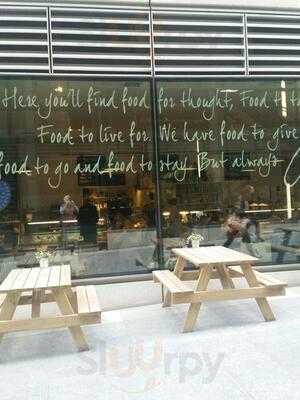 Here you'll find food for thought, Food to t
Food to live for. We have food to give
Food to go and food to stay. But always
Sluurpy